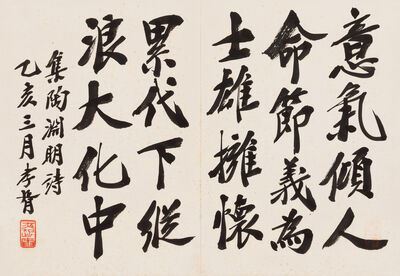 意氣傾人
命節義為
士雄擁懷
累代下縱
浪大化中
集陶淵明詩
乙亥三月李